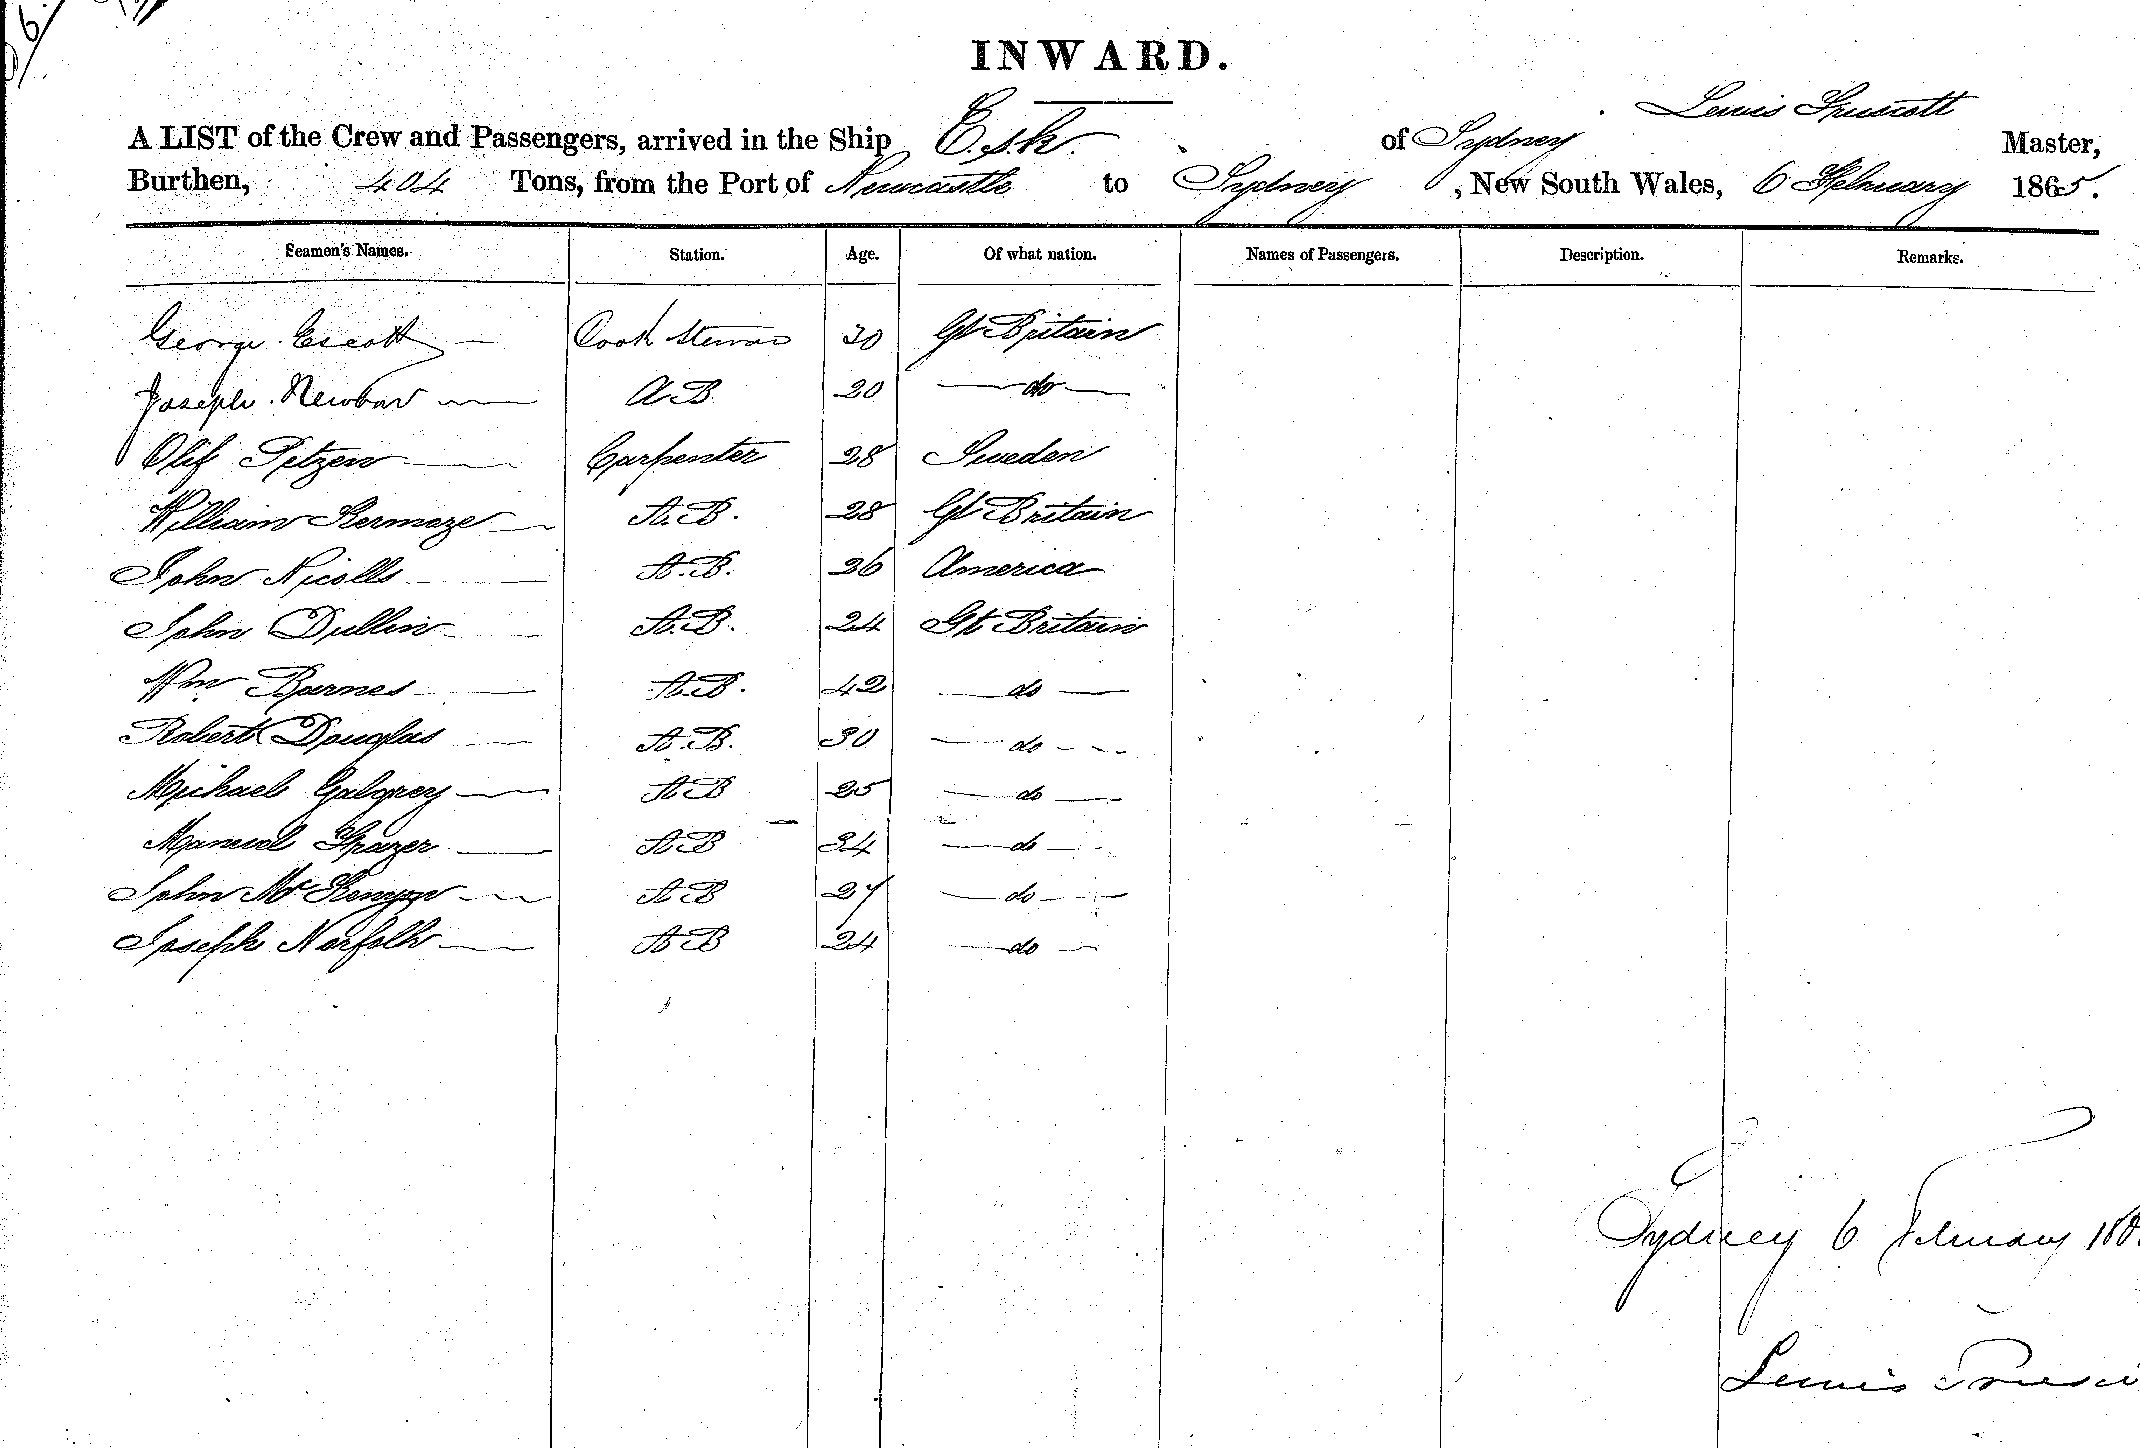 INWARD.
Lewis Truscott
A LIST of the Crew and Passengers, arrived in the Ship Esk. of Sydney Master,
Burthen, 404 Tons, from the Port of Newcastle to Sydney , New South Wales, 6 February 1865.
Seamen's Names. Station. Age. Of what nation. Names of Passengers. Description. Remarks.
George Escott Cook 30 Gt Britain
Joseph A B 20 do
Olif Petzen Carpenter 28 Sweden
William Kermoze A.B. 28 Gt Britain
John Nicolls A.B. 26 America
John Dullin A.B. 24 Gt Britain
Wm Barnes A.B. 42 do
Robert Douglas A.B. 30 do
Michael A B 25 do
A B 34 do
John A B 27 do
Joseph Norfolk A B 24 do
Sydney 6 February
Lewis